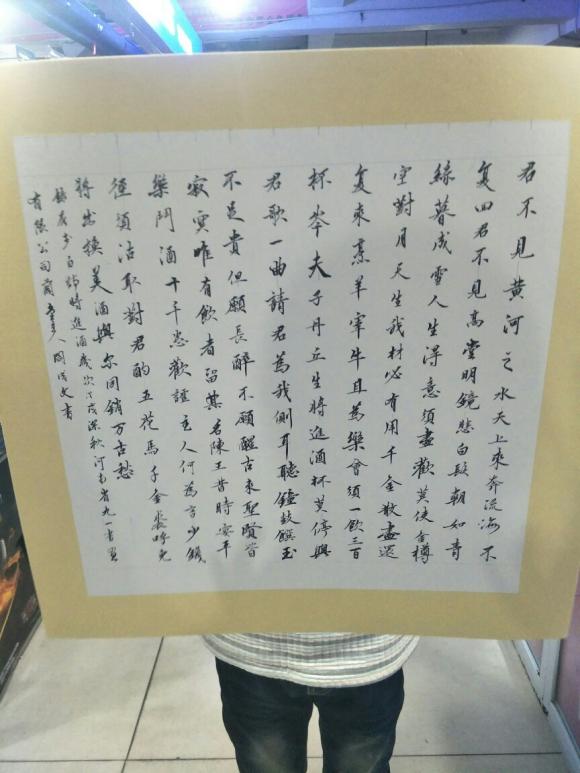 君不見黄河之水天上來奔流海不
复回君不見高堂明鏡悲白髮朝如青
絲暮成雪人生得意須盡歡莫使金樽
空對月天生我材必有用千金散盡還
复來烹羊宰牛且為樂會須一飲三百
杯岑夫子丹丘生將進酒杯莫停與
君歌一曲請君為我側耳聽鐘鼓饌玉
不足貴但願長醉不願醒古來聖賢皆
寂寞唯有飲者留其名陳王昔時宴平
樂鬥酒十千恣歡謔主人何為言少錢
徑須沽取對君酌五花馬千金裘呼兒
將出換美酒與尔同銷万古愁
李白詩將進酒歲次戊戌深秋河南省九一書畫
有限公司蘭亭人閆成文書